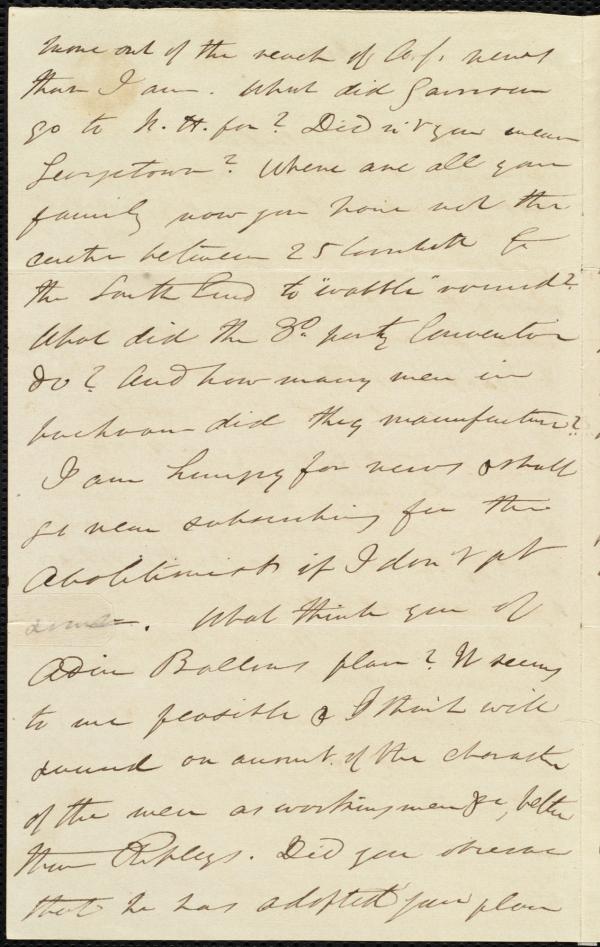 more out of the reach of A.S. news
than I am. What did Garrison
go to N.H. for? Didn't you mean
Georgetown? Where are all your
family now you have not the
centre between 25 Cornhill &
the South End to "wabble" round?
What did the 3d. party Convention
do? And how many men in
did they manufacture?
I am hungry for news & shall
go near subscribing for the
Abolitionist if I don't get
some. What think you of
Adin Ballous plan? It seems
to me feasible & I think will
succeed on account. of the character
of the men as workingmen &c, better
than Ripleys. Did you observe
that he has adopted your plan